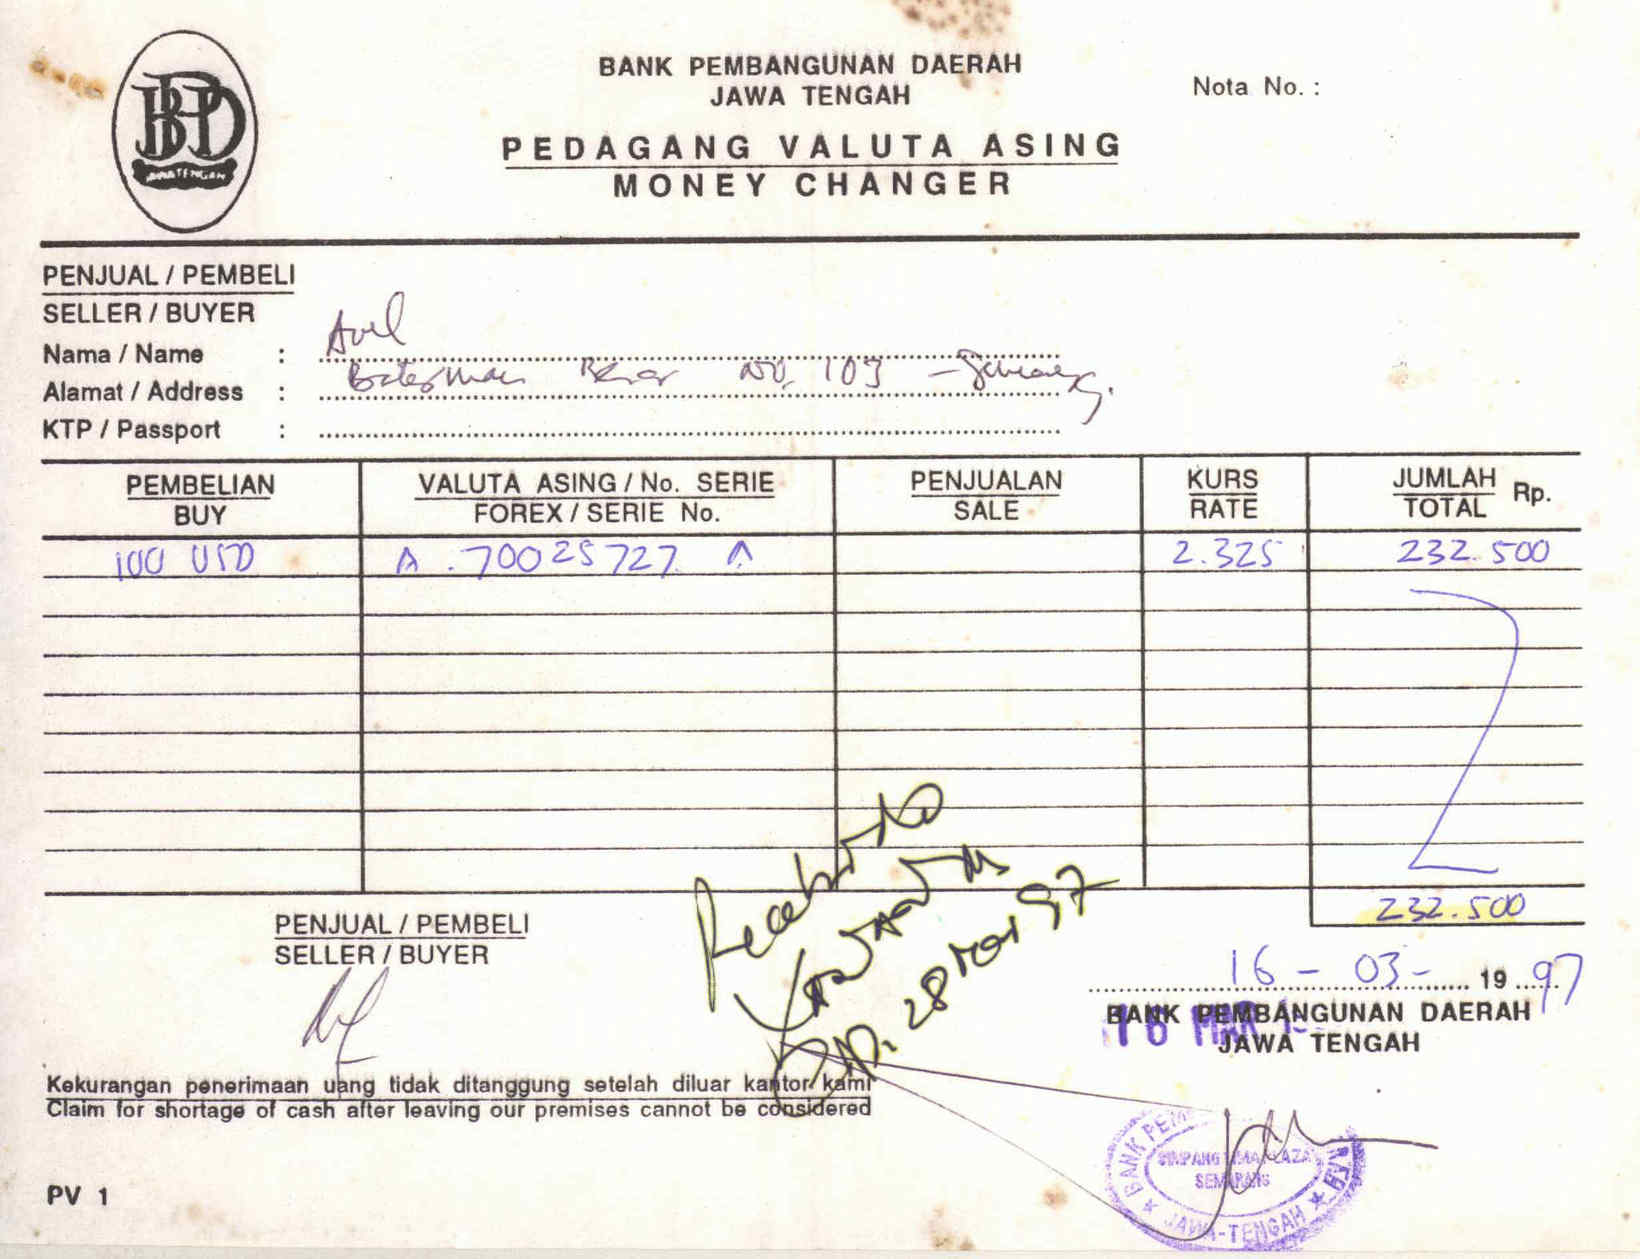 BPD
JAWA TENGAH
BANK PEMBANGUNAN DAERAH
JAWA TENGAH
Nota No. :
PEDAGANG VALUTA ASING
MONEY CHANGER
PENJUAL / PEMBELI
SELLER / BUYER
Nama / Name :
Alamat / Address : No. 103 -
KTP / Passport :
PEMBELIAN VALUTA ASING / No. SERIE PENJUALAN KURS JUMLAH Rp.
BUY FOREX / SERIE No. SALE RATE TOTAL
100 USD A . 70025727 A 2.325 232.500
232.500
PENJUAL / PEMBELI
SELLER / BUYER
28 97
16 - 03 - 19 97
BANK PEMBANGUNAN DAERAH
JAWA TENGAH
16 MAR
Kekurangan penerimaan uang tidak ditanggung setelah diluar kantor kami
Claim for shortage of cash after leaving our premises cannot be considered
BANK PEM
SIMPANG LIMA PLAZA
SEMARANG
JAWA-TENGAH
PV 1